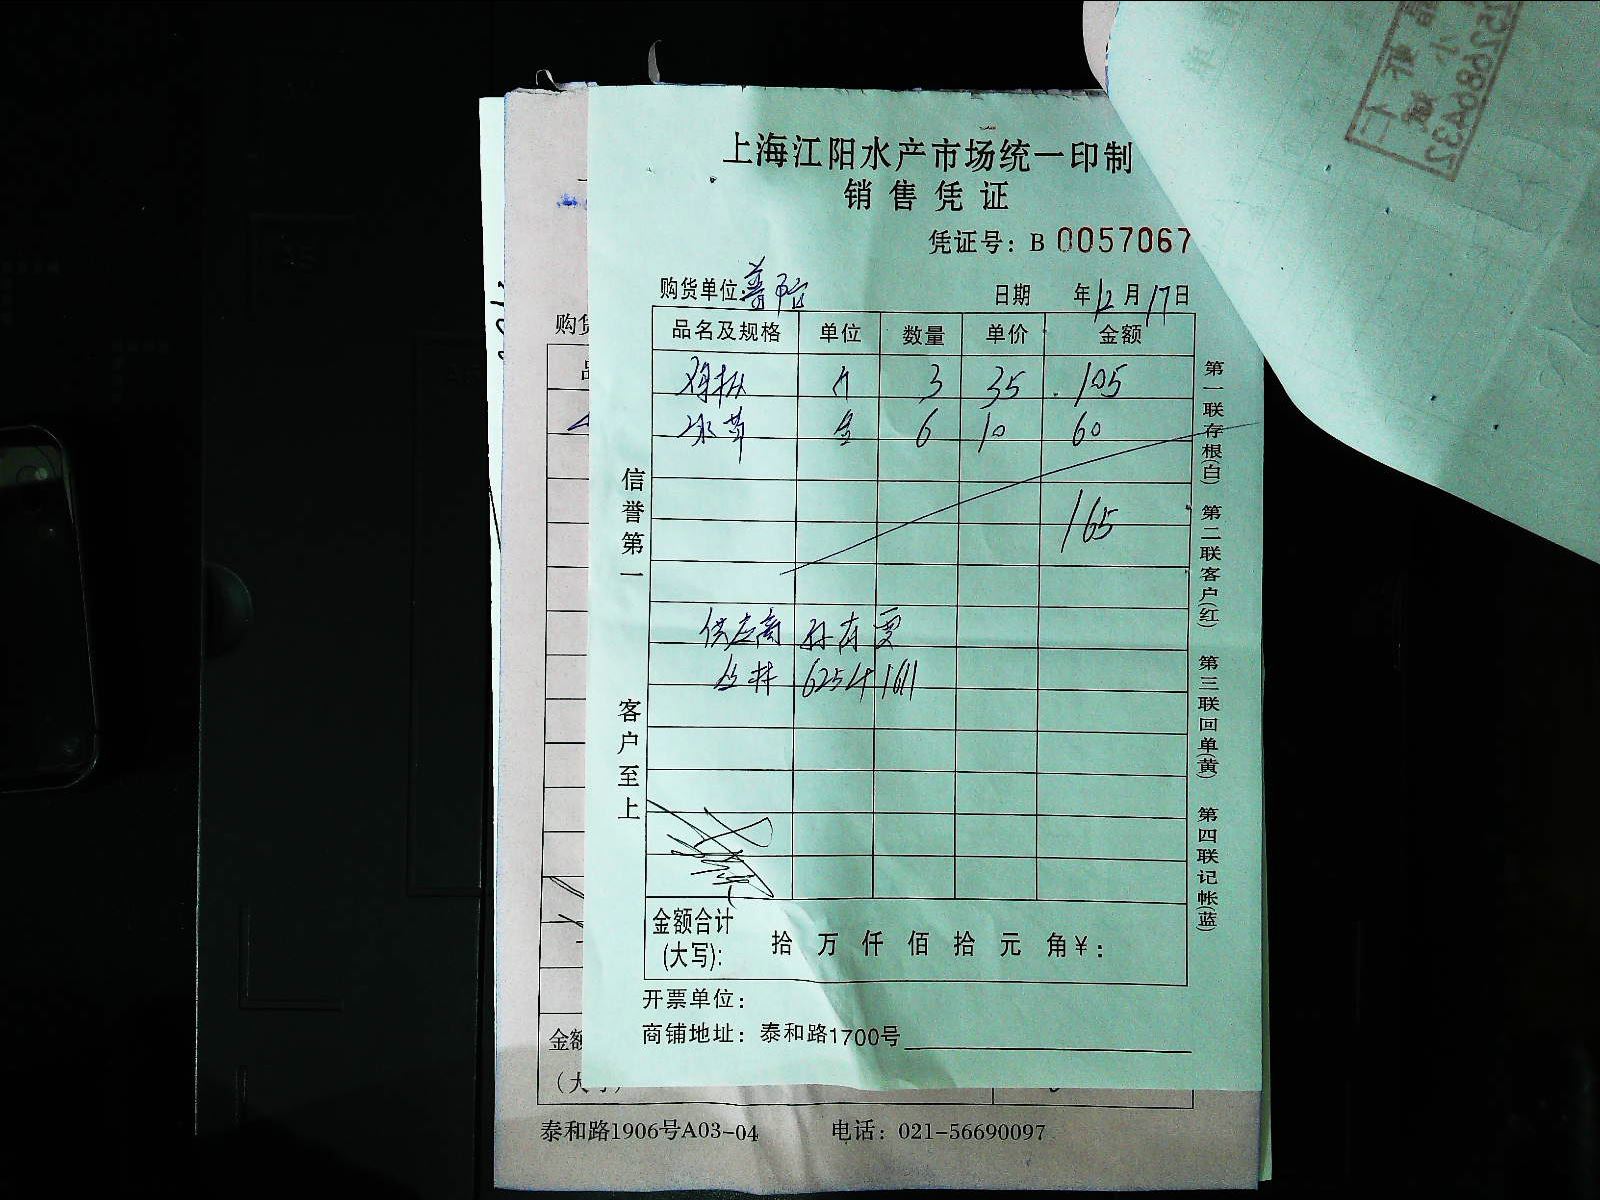 上海江阳水产市场统一印制
销售凭证
凭证号：B 0057067
购货单位：普陀
日期 年12月17日
品名及规格 单位 数量 单价 金额
鸡枞 斤 3 35 105
冰草 盒 6 10 60
165
供应商 孙有
丛林 62541611
金额合计
(大写): 拾 万 仟 佰 拾 元 角 ¥:
开票单位：
商铺地址：泰和路1700号
信誉第一
客户至上
第一联存根(白) 第二联客户(红) 第三联回单(黄) 第四联记帐(蓝)
购货
金额
(大写)
泰和路1906号A03-04 电话：021-56690097